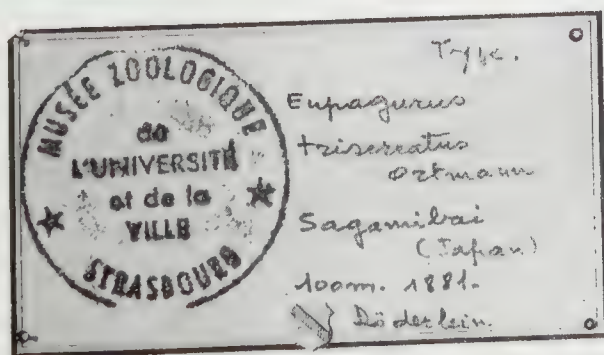 MUSÉE ZOOLOGIQUE
de
L'UNIVERSITÉ
et de la
VILLE
STRASBOURG
Type.
Eupagurus
triserratus
Ortmann
Sagamibai
(Japan)
100m. 1881.
Döderlein